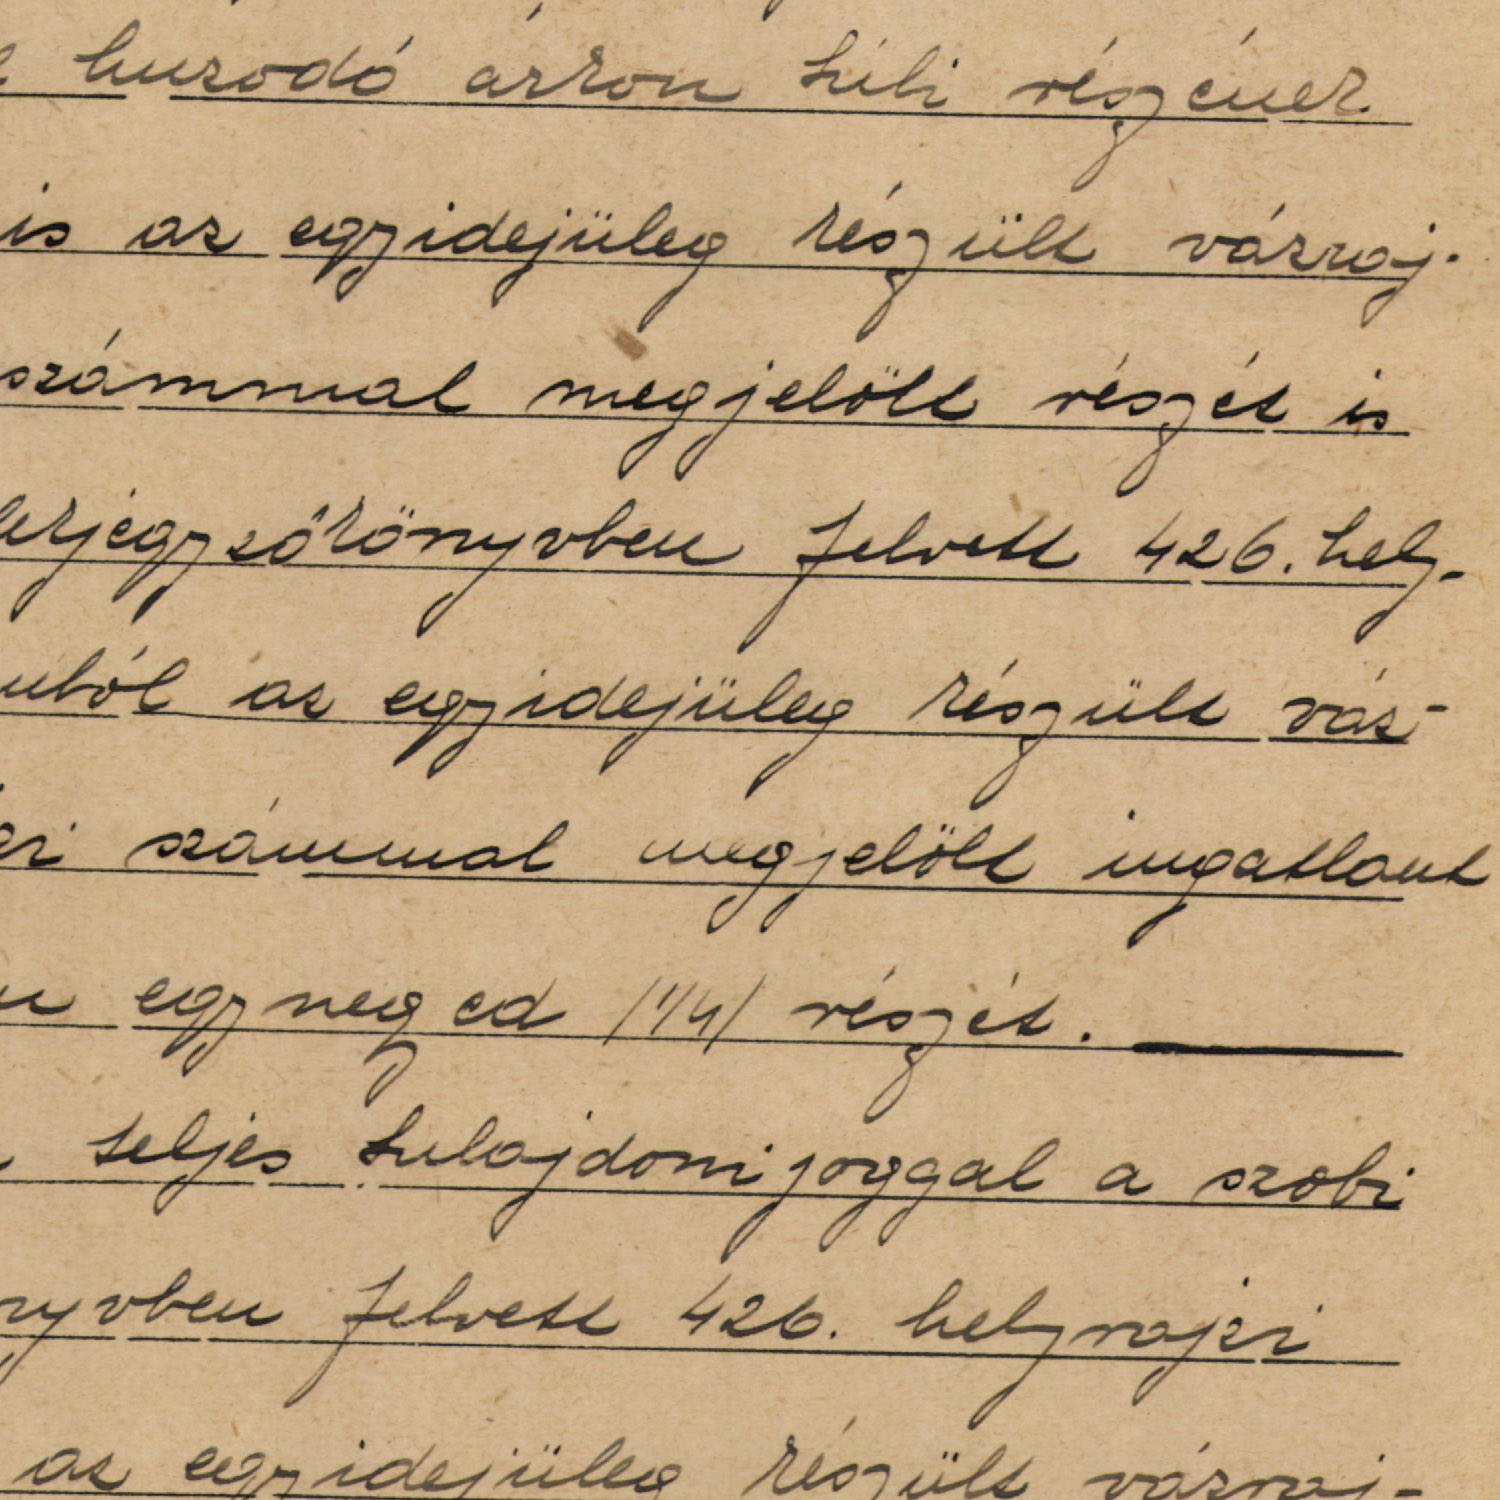 huzodó árkon tuli részének
is az egyidejüleg készült vázraj-
számmal megjelölt részét is
lekjegyzőkönyvben felvett 426. hely-
ból az egyidejüleg készült váz-
zi számmal megjelölt ingatlant
egynegyed /1/4/ részét.
teljes tulajdonijoggal a szobi
nyvben felvett 426. helyrajzi
az egyidejüleg készült vázraj-